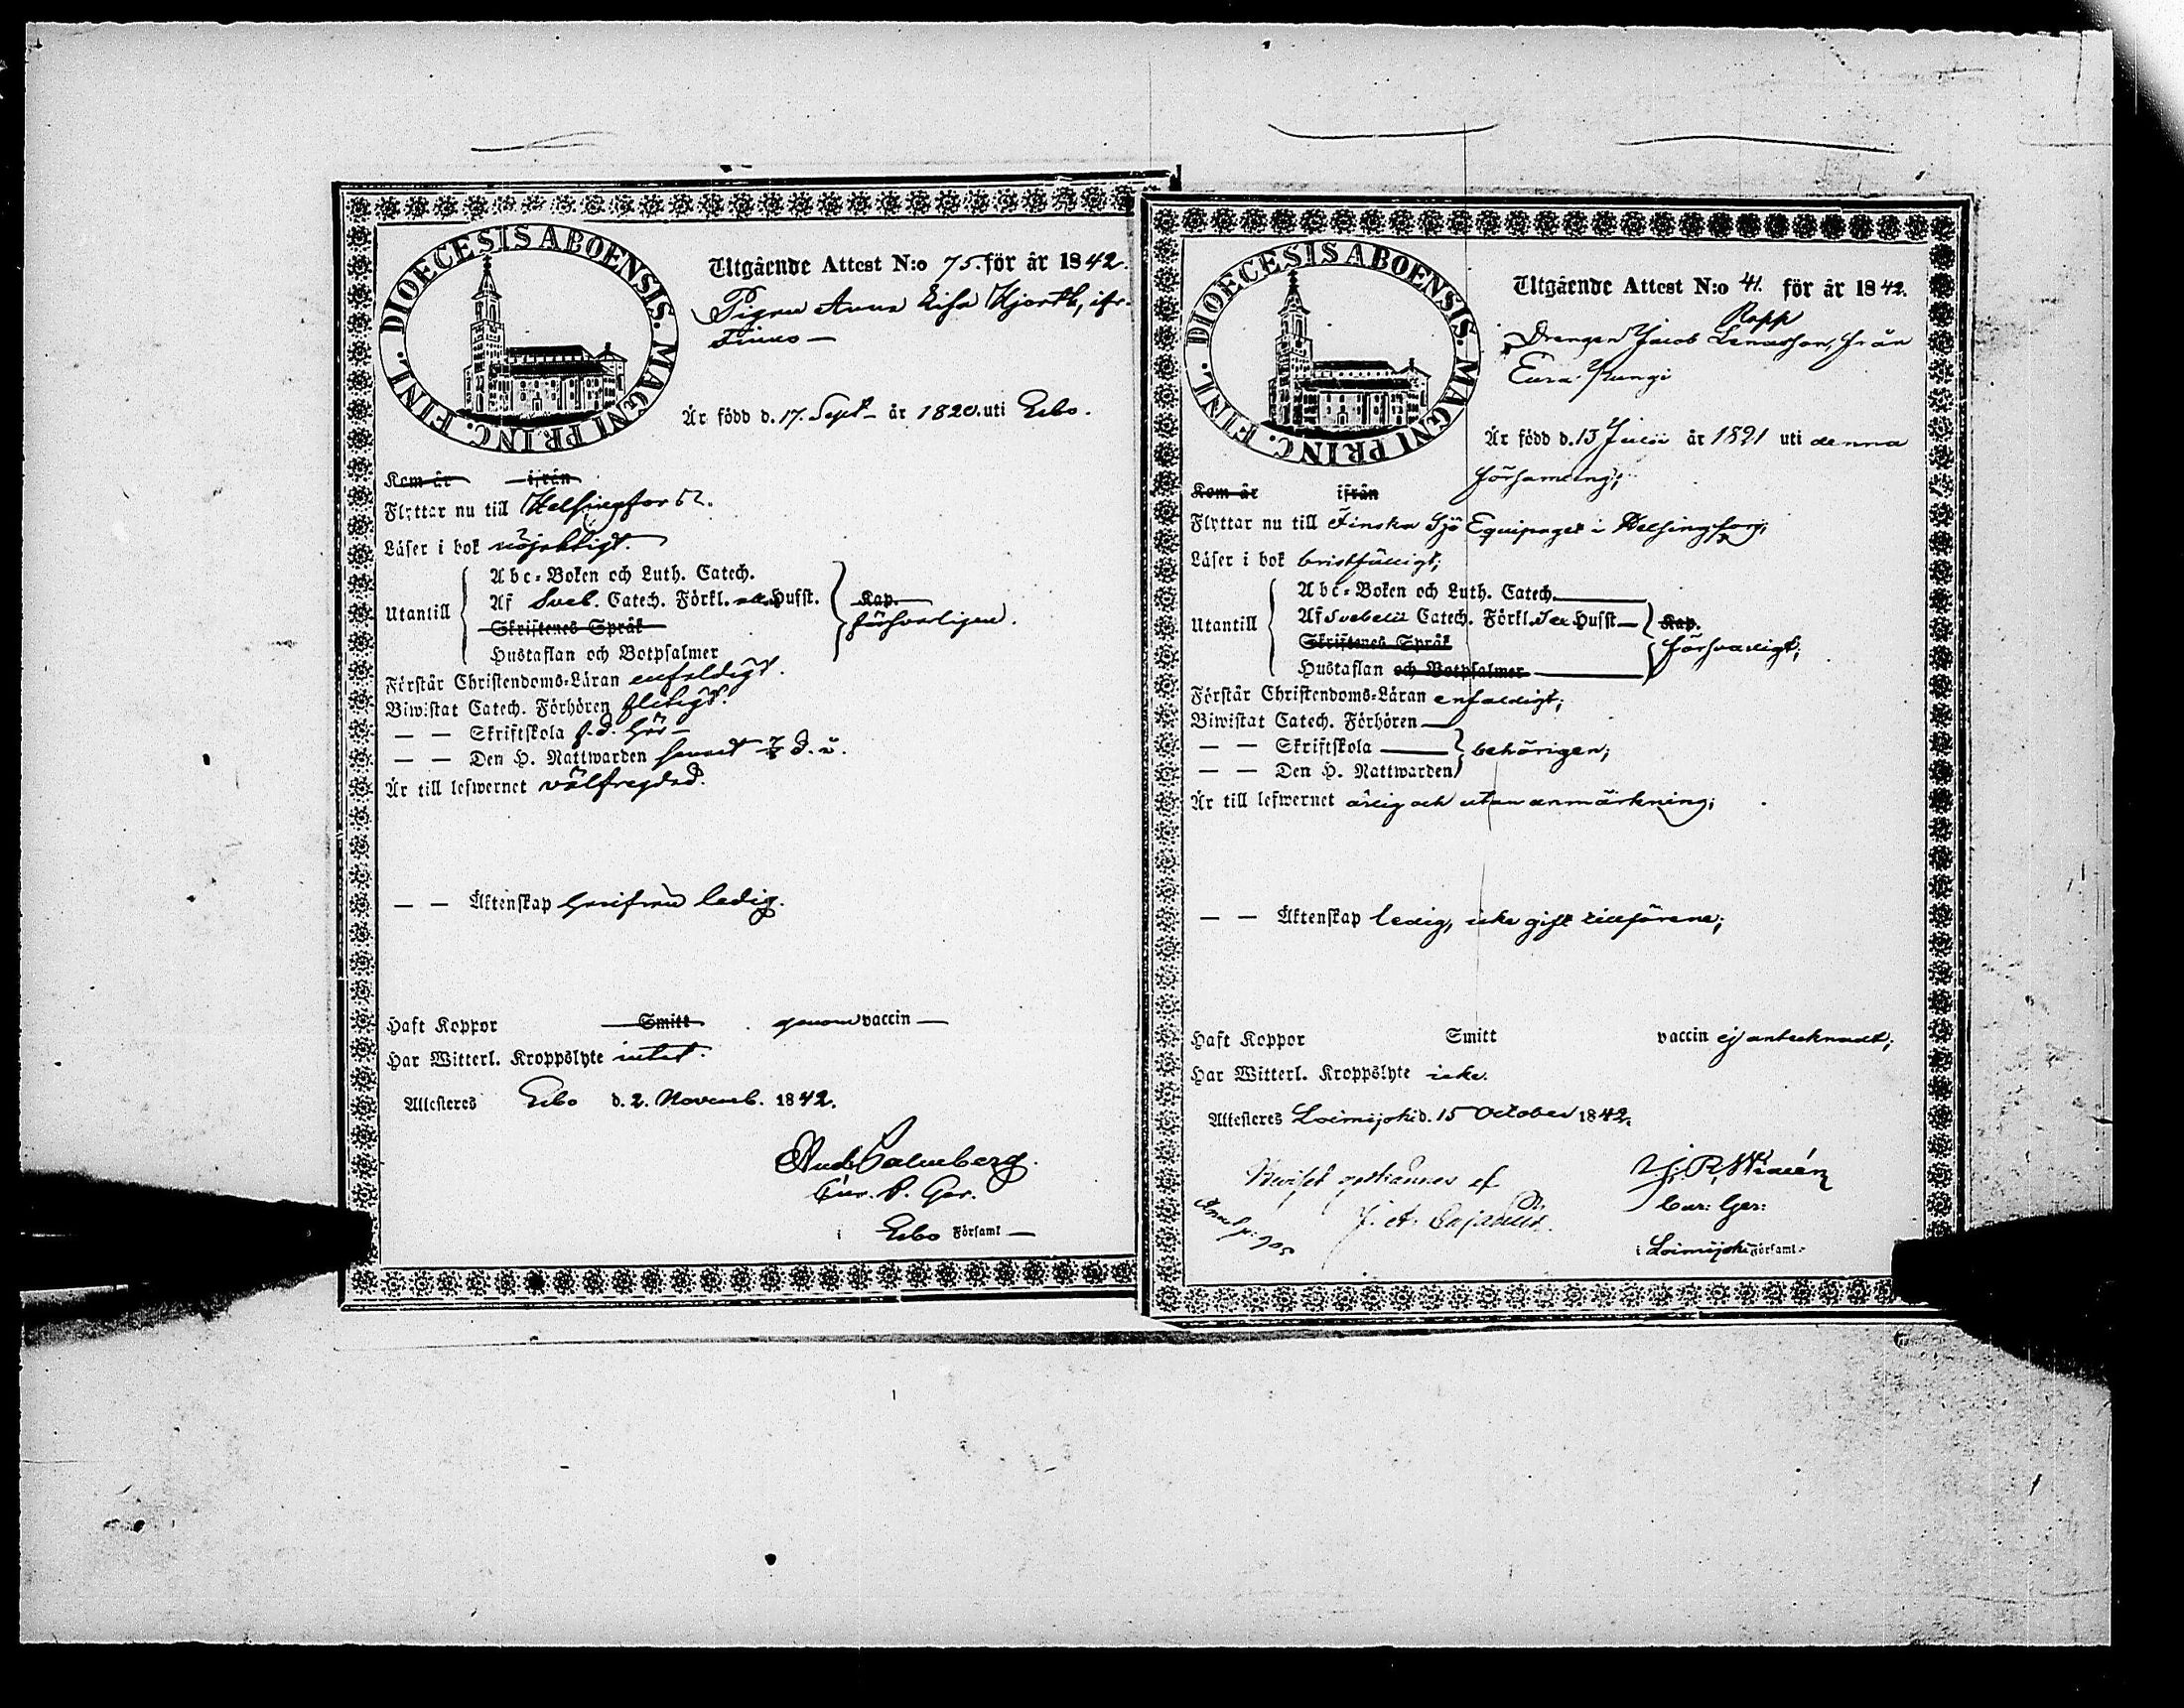 DIOECESIS ABOENSIS. MAGNI PRINC. FINL.
Utgående Attest N:o 75. för år 1842.
Pigan Anna Lisa Hjorth, ifr.
Finno —
Är född d. 17. Sept. år 1820. uti Esbo.
Kom år ifrån
Flyttar nu till Helsingfors.
Läser i bok nöjaktigt.
Abc-Boken och Luth. Catech.
Utantill Af Sveb. Catech. Förkl. Husst. Kap.
försvarligen.
Skriftenes Språk
Hustaflan och Botpsalmer
Förstår Christendoms-Läran enfaldigt.
Biwistat Catech. Förhören flitigt.
— — Skriftskola
— — Den H. Nattwarden senast
Är till lefwernet välfrejdad.
— — Äktenskap hinderfri ledig.
Haft Koppor Smitt genom vaccin —
Har Witterl. Kroppslyte intet.
Attesteras Esbo d. 2. Novemb. 1842.
And. Palmberg.
Cur. P. Ger.
i Esbo Församl —
DIOECESIS ABOENSIS. MAGNI PRINC. FINL.
Utgående Attest N:o 41. för år 1842.
Rapp
Drengen Jacob från
Eura Pungi
Är född d. 13 Julii år 1821 uti denna
församling;
Kom år ifrån
Flyttar nu till Finska Sjö Equipaget i Helsingfors;
Läser i bok bristfälligt;
Abc-Boken och Luth. Catech.
Utantill Af Svebelii Catech. Förkl. Husst — Kap.
försvarligt;
Skriftenes Språk
Hustaflan och Botpsalmer
Förstår Christendoms-Läran enfaldigt;
Biwistat Catech. Förhören —
— — Skriftskola — behörigen;
— — Den H. Nattwarden
Är till lefwernet ärlig och utan anmärkning;
— — Äktenskap ledig, icke gift tillförene;
Haft Koppor Smitt vaccin ej antecknadt;
Har Witterl. Kroppslyte icke.
Attesteras Loimijoki d. 15 October 1842.
Cur: Ger:
i Loimijoki Församl.